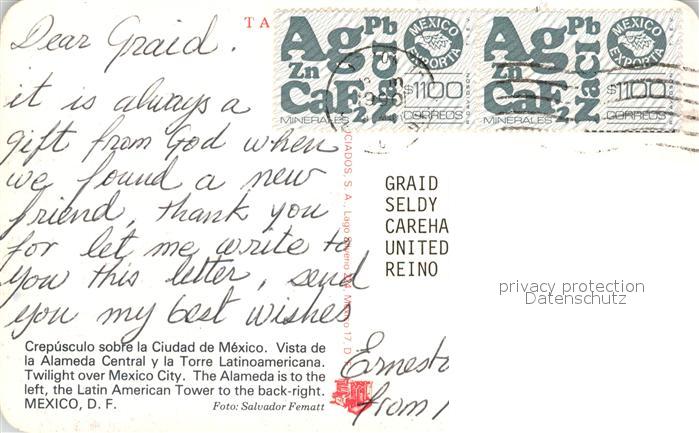 Dear Graid.
it is always a
gift from God when
we found a new
friend, thank you
for let me write to
you this letter, send
you my best wishes
Ernesto
from
Crepúsculo sobre la Ciudad de México. Vista de
la Alameda Central y la Torre Latinoamericana.
Twilight over Mexico City. The Alameda is to the
left, the Latin American Tower to the back-right.
MEXICO, D. F. Foto: Salvador Fematt
TA
CIADOS, S. A.
Ag Pb
Zn
CaF2 NaCl
MEXICO EXPORTA
$1100
MINERALES CORREOS
Ag Pb
Zn
CaF2 NaCl
MEXICO EXPORTA
$1100
MINERALES CORREOS
GRAID
SELDY
CAREHA
UNITED
REINO
privacy protection
Datenschutz